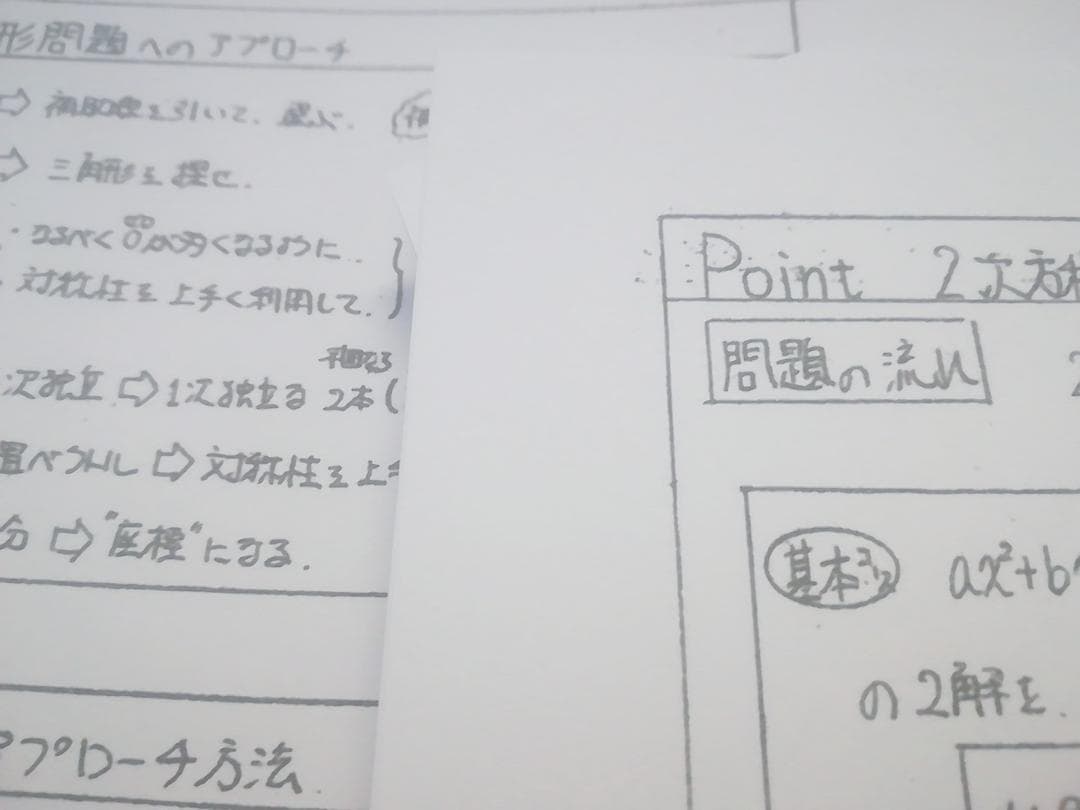 形問題へのアプローチ
⇨ 補助線を引いて、
⇨ 三角形を探せ.
・なるべく 0が多くなるように.
・対称性を上手く利用して.
次独立 ⇨ 1次独立な 2本(
置ベクトル ⇨ 対称性を上手
分 ⇨ "座標"になる.
アプローチ方法.
Point 2次方程
問題の流れ 2
基本 ax²+b
の2解を.